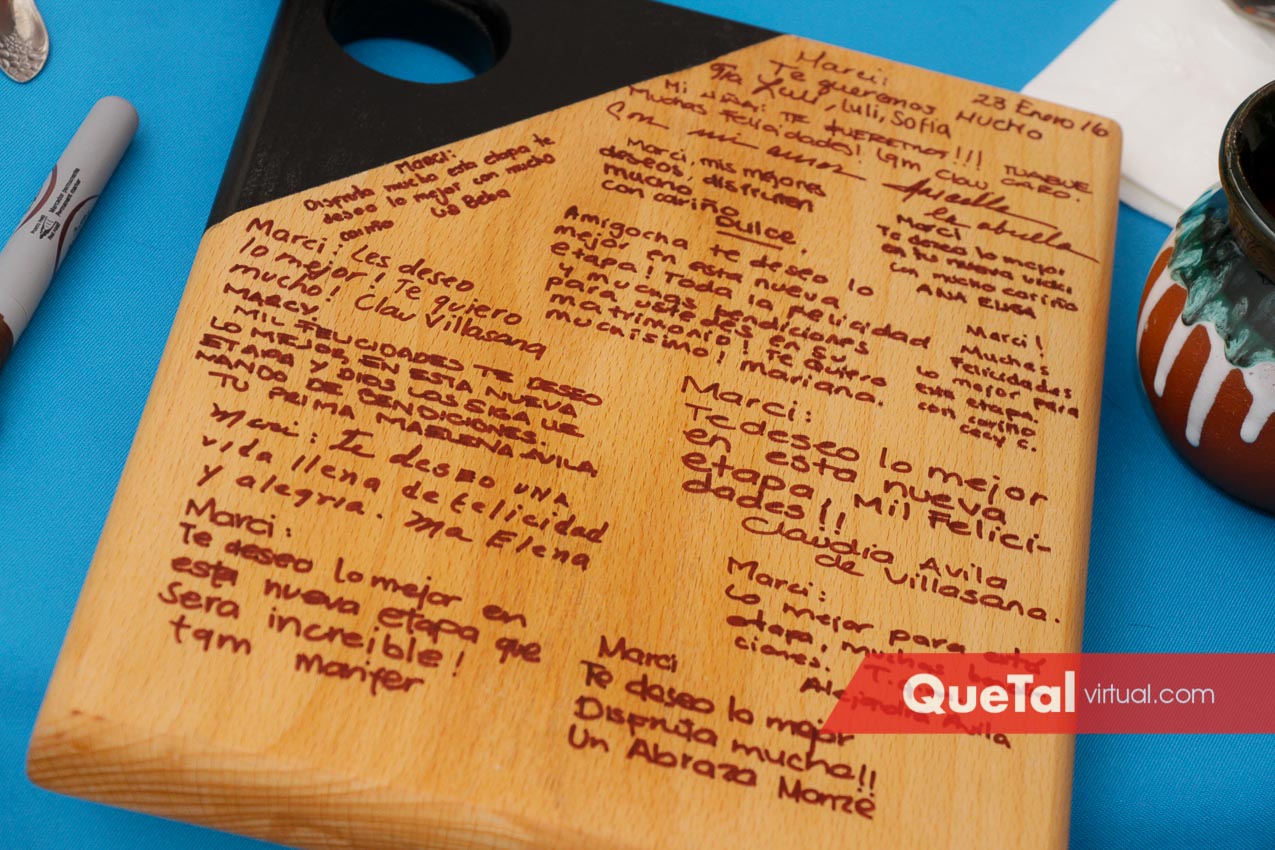 Marci:
Te queremos
Mucho
Tía Xuli, Luli, Sofía
23 Enero 16
Mi niña: TE QUEREMOS!!!
Muchas Felicidades! tqm Claw
Con mi amor
abuela
Marci:
Disfruta mucho esta etapa te
deseo lo mejor con mucho
cariño
tía Beba
Marci, mis mejores
deseos, disfruten
mucho,
con cariño
Dulce.
Marci
Te deseo lo mejor
en tu nueva vida
con mucho cariño
ANA ELISA
Marci: Les deseo
lo mejor! Te quiero
mucho! Clau Villasana
Amigocha te deseo lo
mejor en esta nueva
etapa! Toda la felicidad
y muchas bendiciones
para ustedes en su
matrimonio! Te quiero
muchísimo! Mariana.
Marci!
Muchas
Felicidades
Lo mejor para
esta etapa,
con cariño
Cecy C.
MARCY
MIL FELICIDADES TE DESEO
LO MEJOR EN ESTA NUEVA
ETAPA Y DIOS LOS SIGA LLE
NANDO DE BENDICIONES.
TU PRIMA MAELENA AVILA
Marci:
Te deseo lo mejor
en esta nueva
etapa Mil Felici-
dades!!
Claudia Avila
de Villasana.
Marci: Te deseo una
vida llena de felicidad
y alegría. Ma Elena
Marci:
Te deseo lo mejor en
esta nueva etapa que
sera increible!
tqm marifer
Marci:
Lo mejor para esta
etapa, muchas
ciones.
Alejandra Avila
Marci
Te deseo lo mejor
Disfruta mucho!!
Un Abrazo Monze
QueTal virtual.com